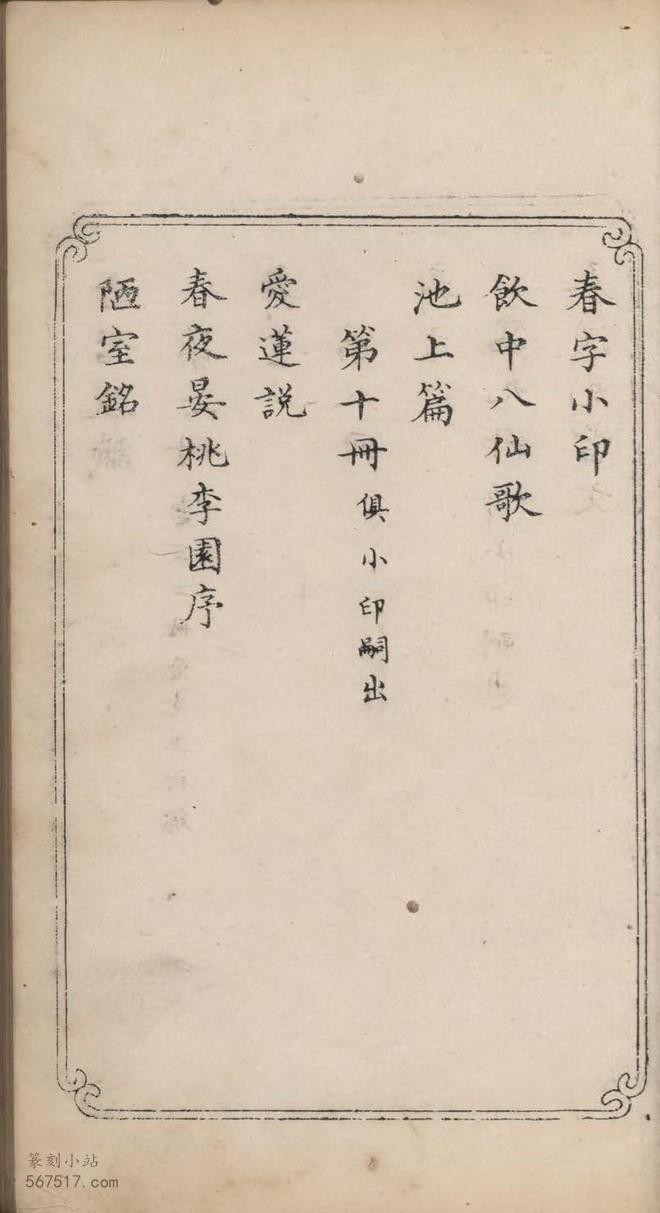 春字小印
飲中八仙歌
池上篇
第十冊俱小印嗣出
愛蓮説
春夜晏桃李園序
陋室銘
篆刻小站
567517.com